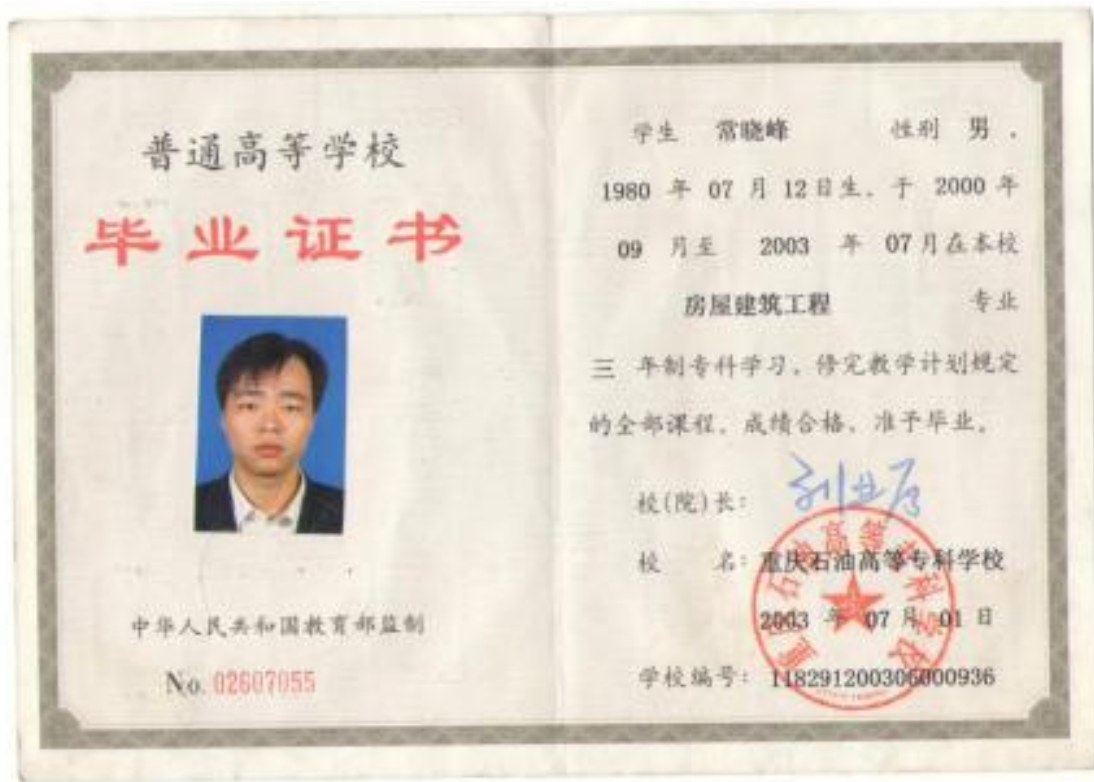 普通高等学校
毕业证书
中华人民共和国教育部监制
No. 02607055
学生 常晓峰 性别 男，
1980 年 07 月 12日生，于 2000 年
09 月至 2003 年 07月在本校
房屋建筑工程 专业
三 年制专科学习，修完教学计划规定
的全部课程，成绩合格，准予毕业。
校(院)长：
校 名：重庆石油高等专科学校
2003 年 07 月 01 日
学校编号：118291200306000936
重庆石油高等专科学校